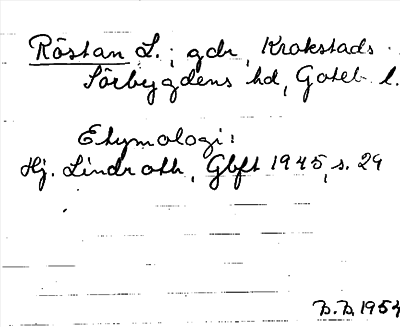 Röstan L.; gdr, Krokstads
Sörbygdens hd, Göteb. l.
Etymologi:
Hj. Lindroth, Gbft 1945, s. 29
B.B. 1954